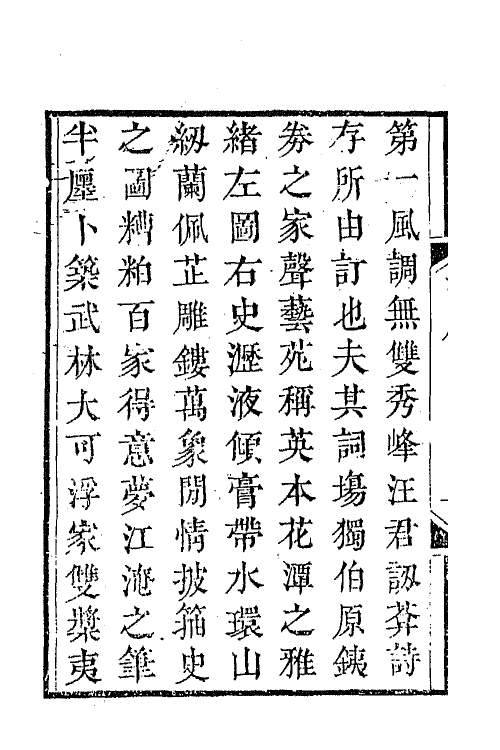 第一風調無雙秀峰汪君訒葊詩
存所由訂也夫其詞場獨伯原鉄
券之家聲藝苑稱英本花潭之雅
緒左圖右史瀝液傾膏帶水環山
紉蘭佩芷雕鏤萬象閒情披笛史
之圖糟粕百家得意夢江淹之筆
半廛卜築武林大可浮家雙槳夷